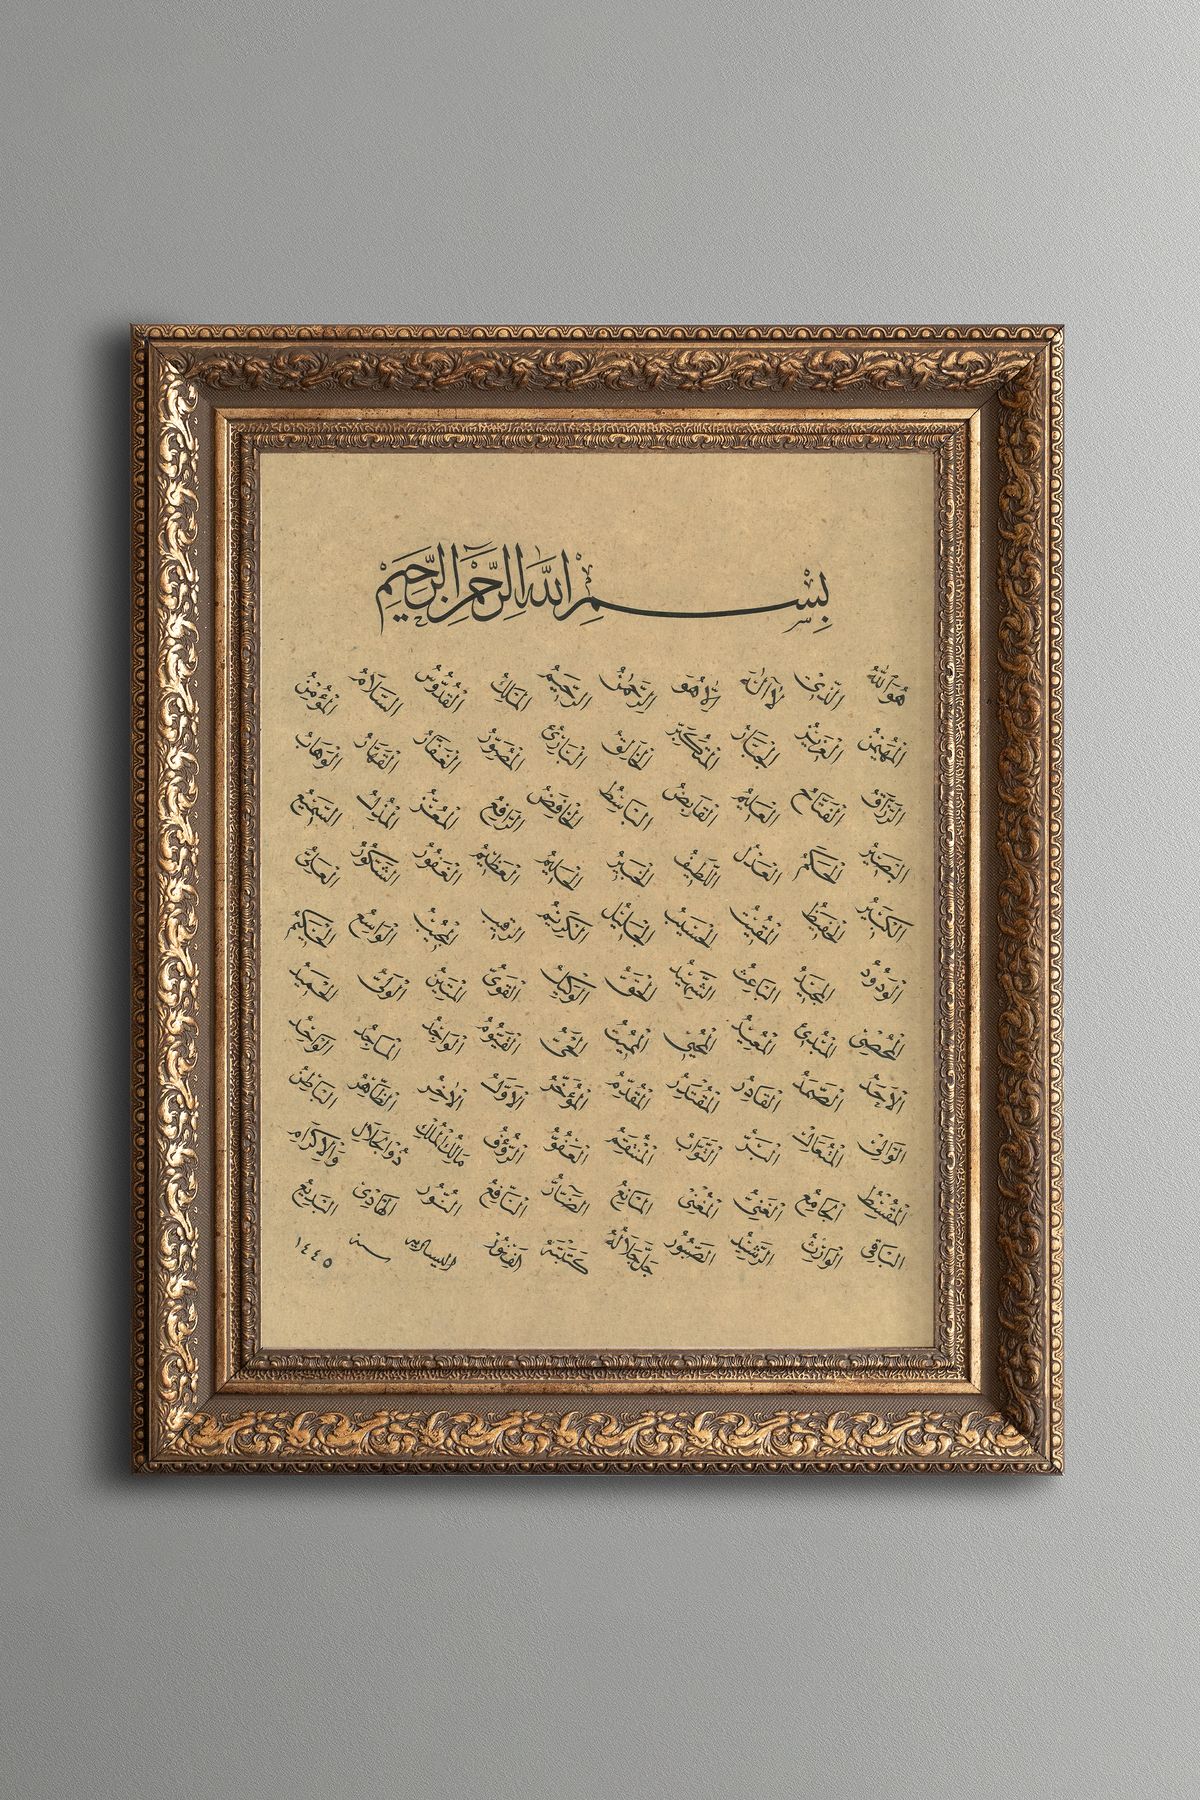 بِسْمِ اللهِ الرَّحْمٰنِ الرَّحِيمِ
هُوَ اللهُ الَّذِي لَا إِلٰهَ إِلَّا هُوَ الرَّحْمٰنُ الرَّحِيمُ المَلِكُ القُدُّوسُ السَّلَامُ المُؤْمِنُ
المُهَيْمِنُ العَزِيزُ الجَبَّارُ المُتَكَبِّرُ الخَالِقُ البَارِئُ المُصَوِّرُ الغَفَّارُ القَهَّارُ الوَهَّابُ
الرَّزَّاقُ الفَتَّاحُ العَلِيمُ القَابِضُ البَاسِطُ الخَافِضُ الرَّافِعُ المُعِزُّ المُذِلُّ السَّمِيعُ
البَصِيرُ الحَكَمُ العَدْلُ اللَّطِيفُ الخَبِيرُ الحَلِيمُ العَظِيمُ الغَفُورُ الشَّكُورُ العَلِيُّ
الكَبِيرُ الحَفِيظُ المُقِيتُ الحَسِيبُ الجَلِيلُ الكَرِيمُ الرَّقِيبُ المُجِيبُ الوَاسِعُ الحَكِيمُ
الوَدُودُ المَجِيدُ البَاعِثُ الشَّهِيدُ الحَقُّ الوَكِيلُ القَوِيُّ المَتِينُ الوَلِيُّ الحَمِيدُ
المُحْصِي المُبْدِئُ المُعِيدُ المُحْيِي المُمِيتُ الحَيُّ القَيُّومُ الوَاجِدُ المَاجِدُ الوَاحِدُ
الاَحَدُ الصَّمَدُ القَادِرُ المُقْتَدِرُ المُقَدِّمُ المُؤَخِّرُ الاَوَّلُ الاٰخِرُ الظَّاهِرُ البَاطِنُ
الوَالِي المُتَعَالِ البَرُّ التَّوَّابُ المُنْتَقِمُ العَفُوُّ الرَّؤُفُ مَالِكُ المُلْكِ ذُو الجَلَالِ وَالاِكْرَامِ
المُقْسِطُ الجَامِعُ الغَنِيُّ المُغْنِي المَانِعُ الضَّارُّ النَّافِعُ النُّورُ الهَادِي البَدِيعُ
البَاقِي الوَارِثُ الرَّشِيدُ الصَّبُورُ جَلَّ جَلَالُهُ كَتَبَهُ سنة ١٤٤٥